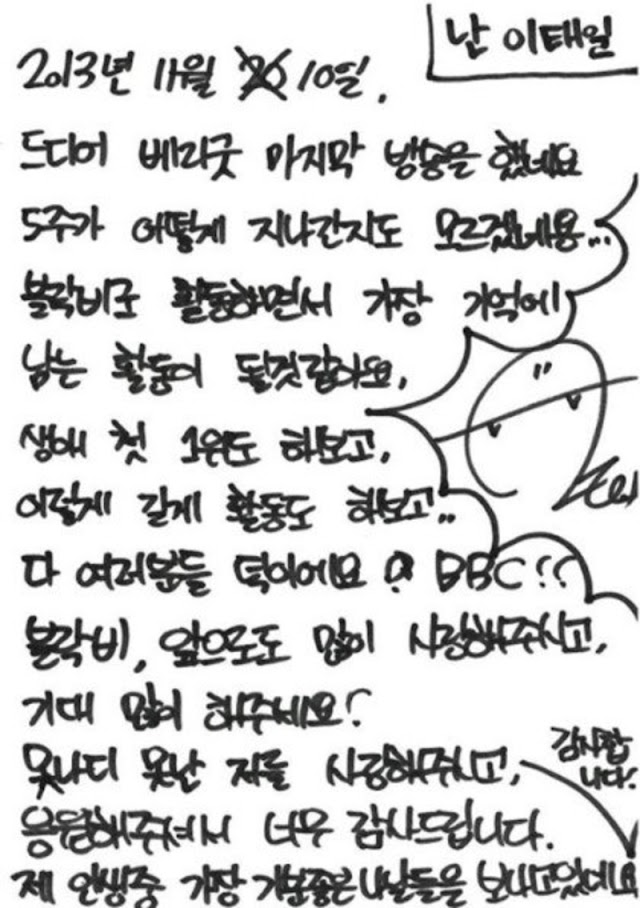 난 이태일
2013년 11월 10일.
드디어 베리굿 마지막 방송을 했네요
5주가 어떻게 지나간지도 모르겠네용...
블락비로 활동하면서 가장 기억에
남는 활동이 될것같아요.
생애 첫 1위도 해보고,
이렇게 길게 활동도 해보고..
다 여러분들 덕이에요 BBC!!
블락비, 앞으로도 많이 사랑해주시고,
기대 많이 해주세요!
못나디 못난 저를 사랑해주시고,
감사합
니다!
응원해주셔서 너무 감사드립니다.
제 인생중 가장 기분좋은 나날들을 보내고있어요